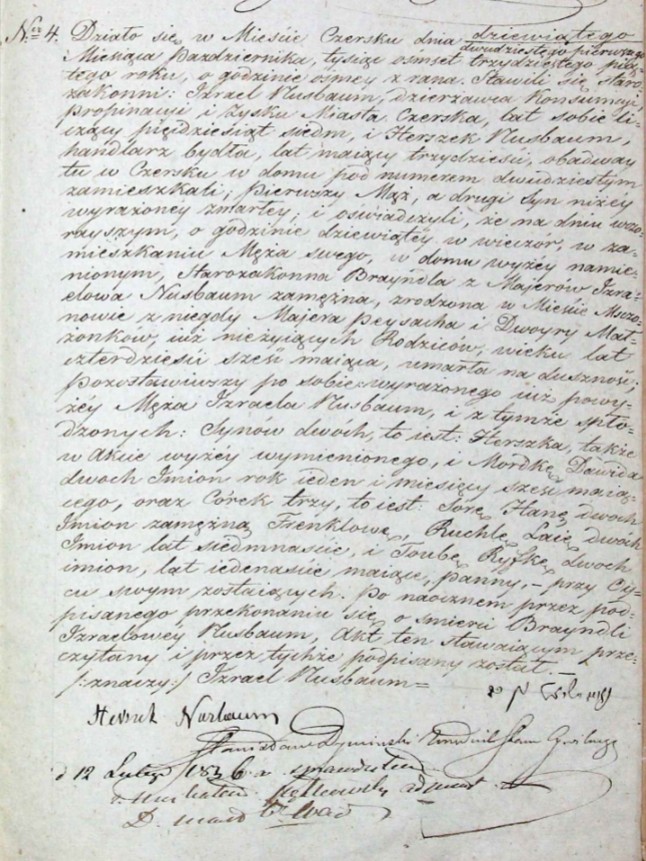 Nro 4. Działo się w Mieście Czersku dnia dziewiątego
dwudziestego pierwszego
Miesiąca Pazdziernika, tysiąc osmset trzydziestego pią-
tego roku, o godzinie osmey z rana. Stawili się Staro-
zakonni: Izrael Nusbaum, dzierzawca Konsumcyi
Propinacyi i Zysku Miasta Czerska, lat sobie li-
czący pięćdziesiąt siedm, i Herszek Nusbaum,
handlarz bydła, lat maiący trzydzieści, obadway
tu w Czersku w domu pod numerem dwudziestym
zamieszkali; pierwszy Mąż, a drugi syn niżey
wyrażoney zmarłey; i oświadczyli, że na dniu wczo-
rayszym, o godzinie dziewiątéy w wieczor, w za-
mieszkaniu Męża swego, w domu wyżéy namie-
nionym, Starozakonna Brayndla z Majerów Izra-
elowa Nusbaum zamężna, zrodzona w Mieście Mszczo-
nowie z niegdy Majera Peysacha i Dwoyry Mał-
żonków, iuż nieżyiących Rodziców, wieku lat
czterdzieści sześć maiąca, umarła na duszność;
Pozostawiwszy po sobie wyrażonego iuż powy-
żéy Męża Izraela Nusbaum, i z tymże spło-
dzonych: Synow dwóch, to iest: Herszka, także
w Akcie wyżéy wymienionego, i Mordkę Dawida
dwoch Imion rok ieden i miesięcy sześć maią-
cego, oraz Córek trzy, to iest: Sorę Hanę dwoch
Imion zamężną Frenklowę, Ruchlę Laię dwóch
Imion lat siedmnaście, i Toubę Ryfkę dwoch
imion, lat iedenaście maiące, panny,- przy Oy-
cu swym zostaiących. Po naocznem przez pod-
pisanego przekonaniu się o śmierci Brayndli
Izraelowey Nusbaum, Akt ten stawaiącym prze-
czytany i przez tychże podpisany został.
/:znaczy:/ Izrael Nusbaum=
Hersek Nusbaum
d 12 Lutego 1836 r. sprawdziłem